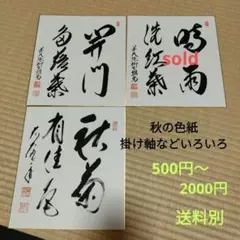 開門
多落葉
時雨
洗紅葉
sold
秋菊
有佳色
秋の色紙
掛け軸などいろいろ
500円〜
2000円
送料別